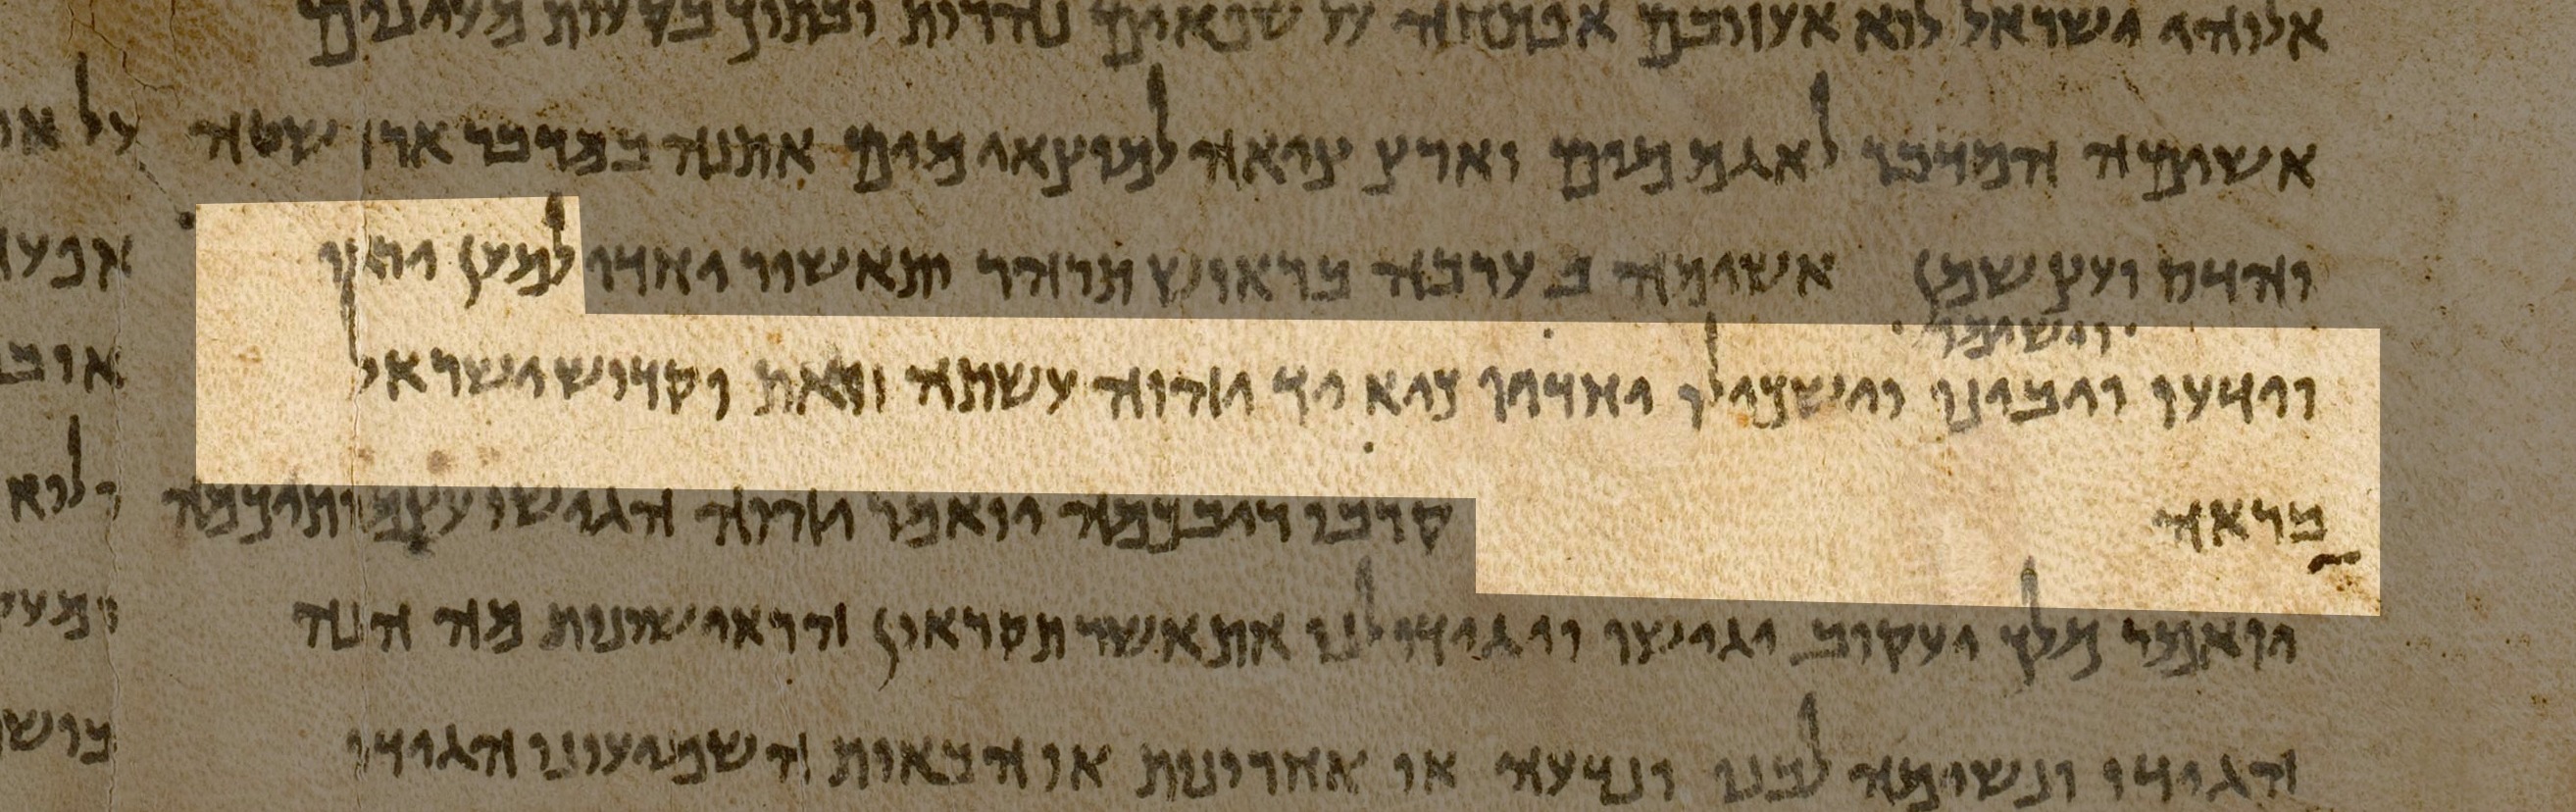 אלוהי ישראל לוא אעזובם אפתחה על שפאים נהרות ובתוך בקעות מעינים
אשימה המדבר לאגם מים וארץ ציאה למוצאי מים אתנה במדבר ארז שטה
והדס ועץ שמן אשימה בערבה בראוש תרהר ותאשור יחדו למען יראו
וישימו
וידעו ויבינו וישכילו יחדיו כיא יד יהוה עשתה זואת וקדוש ישראל
בראה קרבו ריבכמה יואמר יהוה הגישו עצמותיכמה
יואמר מלך יעקוב יגישו ויגידו לנו את אשר תקראין הראישונות מה הנה
הגידו ונשימה לבנו ונדעה או אחרונות או הבאות השמיעונו הגידו